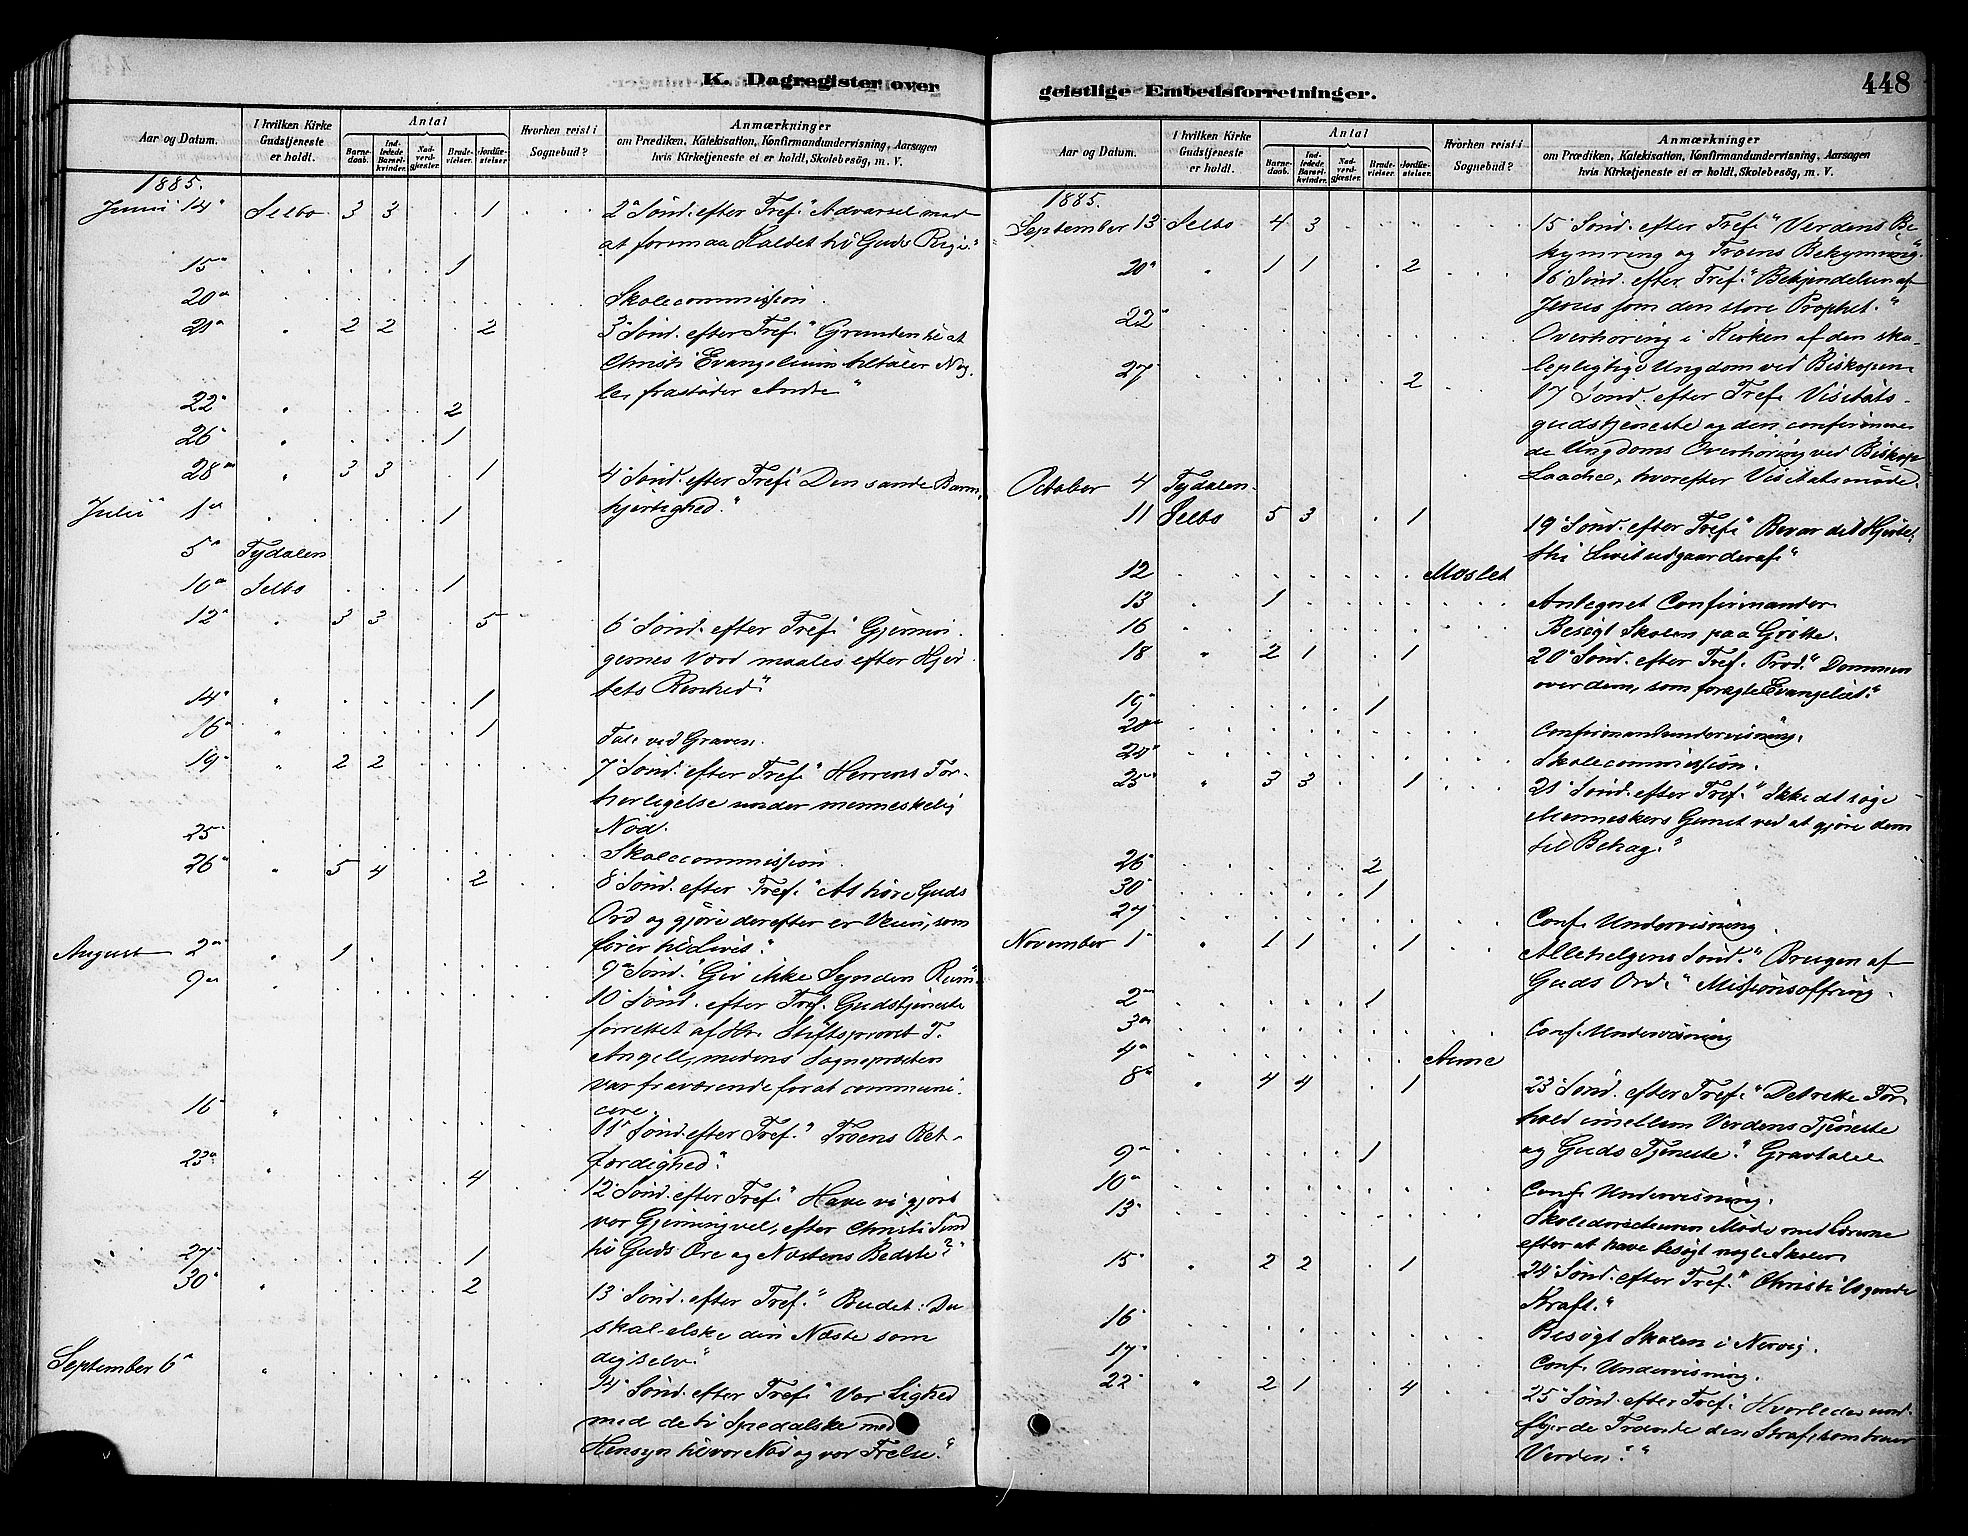 K. Dagregister over
Aar og Datum.
I hvilken Kirke Gudstjeneste er holdt.
Antal
Barnedaab.
Indledede Barselkvinder.
Nadverdgjester.
Brudevielser.
Jordfæstelser
Hvorhen reist i Sognebud?
Anmærkninger
om Prædiken, Katekisation, Konfirmandundervisning, Aarsagen
hvis Kirketjeneste ei er holdt, Skolebesög, m. V.
1885.
Junii 14 Selbo 3 3 . . 1 2 Sönd. efter Tref. "Advarsel mod
at forsmaa Kaldet til Guds Rige."
15 . . . . 1
20 Skolecommission.
21 " 2 2 . . 2 3 Sönd. efter Tref. "Grunden til at
Christi Evangelium tiltaler Nog-
le, frastøder Andre"
22 " . . . 2
26 " . . . 1
28 " 3 3 . . 1 4 Sönd. efter Tref. Den sande Barm-
hjertighed."
Julii 1 . . . . 1
5 Tydalen
10 Selbo . . . 1
12 " 3 3 . . 5 6 Sönd. efter Tref. "Gjernin-
gernes Værd maales efter Hjer-
tets Renhed."
14 " . . . . 1
16 " . . . . 1 Tale ved Graven.
19 " 2 2 . . . 7 Sönd. efter Tref. "Herrens For-
herligelse under menneskelig
Nød.
25 Skolecommission
26 " 5 4 . . 2 8 Sönd. efter Tref. "At høre Guds
Ord og gjøre derefter er Veien, som
fører til Livet."
August 2 " 1 9 Sönd. "Giv ikke Synden Rum"
9 10 Sönd. efter Tref. Gudstjeneste
forrettet af Hr. Stiftsprovst T.
Angell, medens Sognepræsten
var fraværende for at communi-
cere.
16 " 11 Sönd. efter Tref. "Troens Ret-
færdighed."
23 " . . . . 4 12 Sönd. efter Tref. "Have vi gjort
vor Gjerning vel, efter Christi Sind
til Guds Ære og Næstens Bedste?"
27 . . . . . 1
30 " . . . . 2 13 Sönd. efter Tref. "Budet: Du
skal elske din Næste som
dig selv."
September 6 " 14 Sönd. efter Tref. "Vor Lighed
med de ti Spedalske med
Hensyn til vor Nød og vor Frelse."
geistlige Embedsforretninger.
448
Aar og Datum.
I hvilken Kirke Gudstjeneste er holdt.
Antal
Barnedaab.
Indledede Barselkvinder.
Nadverdgjester.
Brudevielser.
Jordfæstelser.
Hvorhen reist i Sognebud?
Anmærkninger
om Prædiken, Katekisation, Konfirmandundervisning, Aarsagen
hvis Kirketjeneste ei er holdt, Skolebesög, m. V.
1885.
September 13 Selbo 4 3 . . . 15 Sönd. efter Tref. "Verdens Be-
kymring og Troens Bekymring".
20 " 1 1 . . 2 16 Sönd. efter Tref. "Bekjendelsen af
Jesus som den store Prophet."
22 Overhøring i Kirken af den sko-
lepligtige Ungdom ved Biskopen
27 . . . . . 2 17 Sönd. efter Tref. Visitats-
gudstjeneste og den confirmere-
de Ungdoms Overhøring ved Biskop
Laache, hvorefter Visitatsmøde.
October 4 Tydalen
11 Selbo 5 3 . . 1 19 Sönd. efter Tref. "Bevar dit Hjerte,
thi Livet udgaar deraf"
12 Moslet
13 " 1 Antegnet Confirmander
16 Besøgt Skolen paa
18 " 2 1 . . 1 20 Sönd. efter Tref. Præd. "Dommen
over dem, som foragte Evangeliet."
19 . . . . 1
20 Confirmandundervisning.
24 Skolecommission.
25 " 3 3 . . 1 21 Sönd. efter Tref. "Ikke at søge
Menneskers Gunst ved at gjøre dem
til Behag."
26 . . . . 2
30 . . . . 1
27 Conf. Undervisning.
November 1 " 1 1 . . 1 Allehelgens Sönd. "Brugen af
Guds Ord." Missionsoffring.
2 . . . . 1
3 Conf. Undervisning
4 Aune
8 " 4 4 . . 1 23 Sönd. efter Tref. "Det rette For-
hold imellem Verdens Tjeneste
og Guds Tjeneste." Gravtale
9 . . . . 1
10 Conf. Undervisning.
13 Skoledirecteuren Møde med Lærerne
efter at have besøgt nogle Skoler.
15 " 2 2 . . 1 24 Sönd. efter Tref. "Christi lægende
Kraft."
16 Besøgt Skolen i Nervig.
17 Conf. Undervisning.
22 " 2 1 . . 4 25 Sönd. efter Tref. "Hvorledes und-
flyer de Troende den Straf, som truer
Verden"."